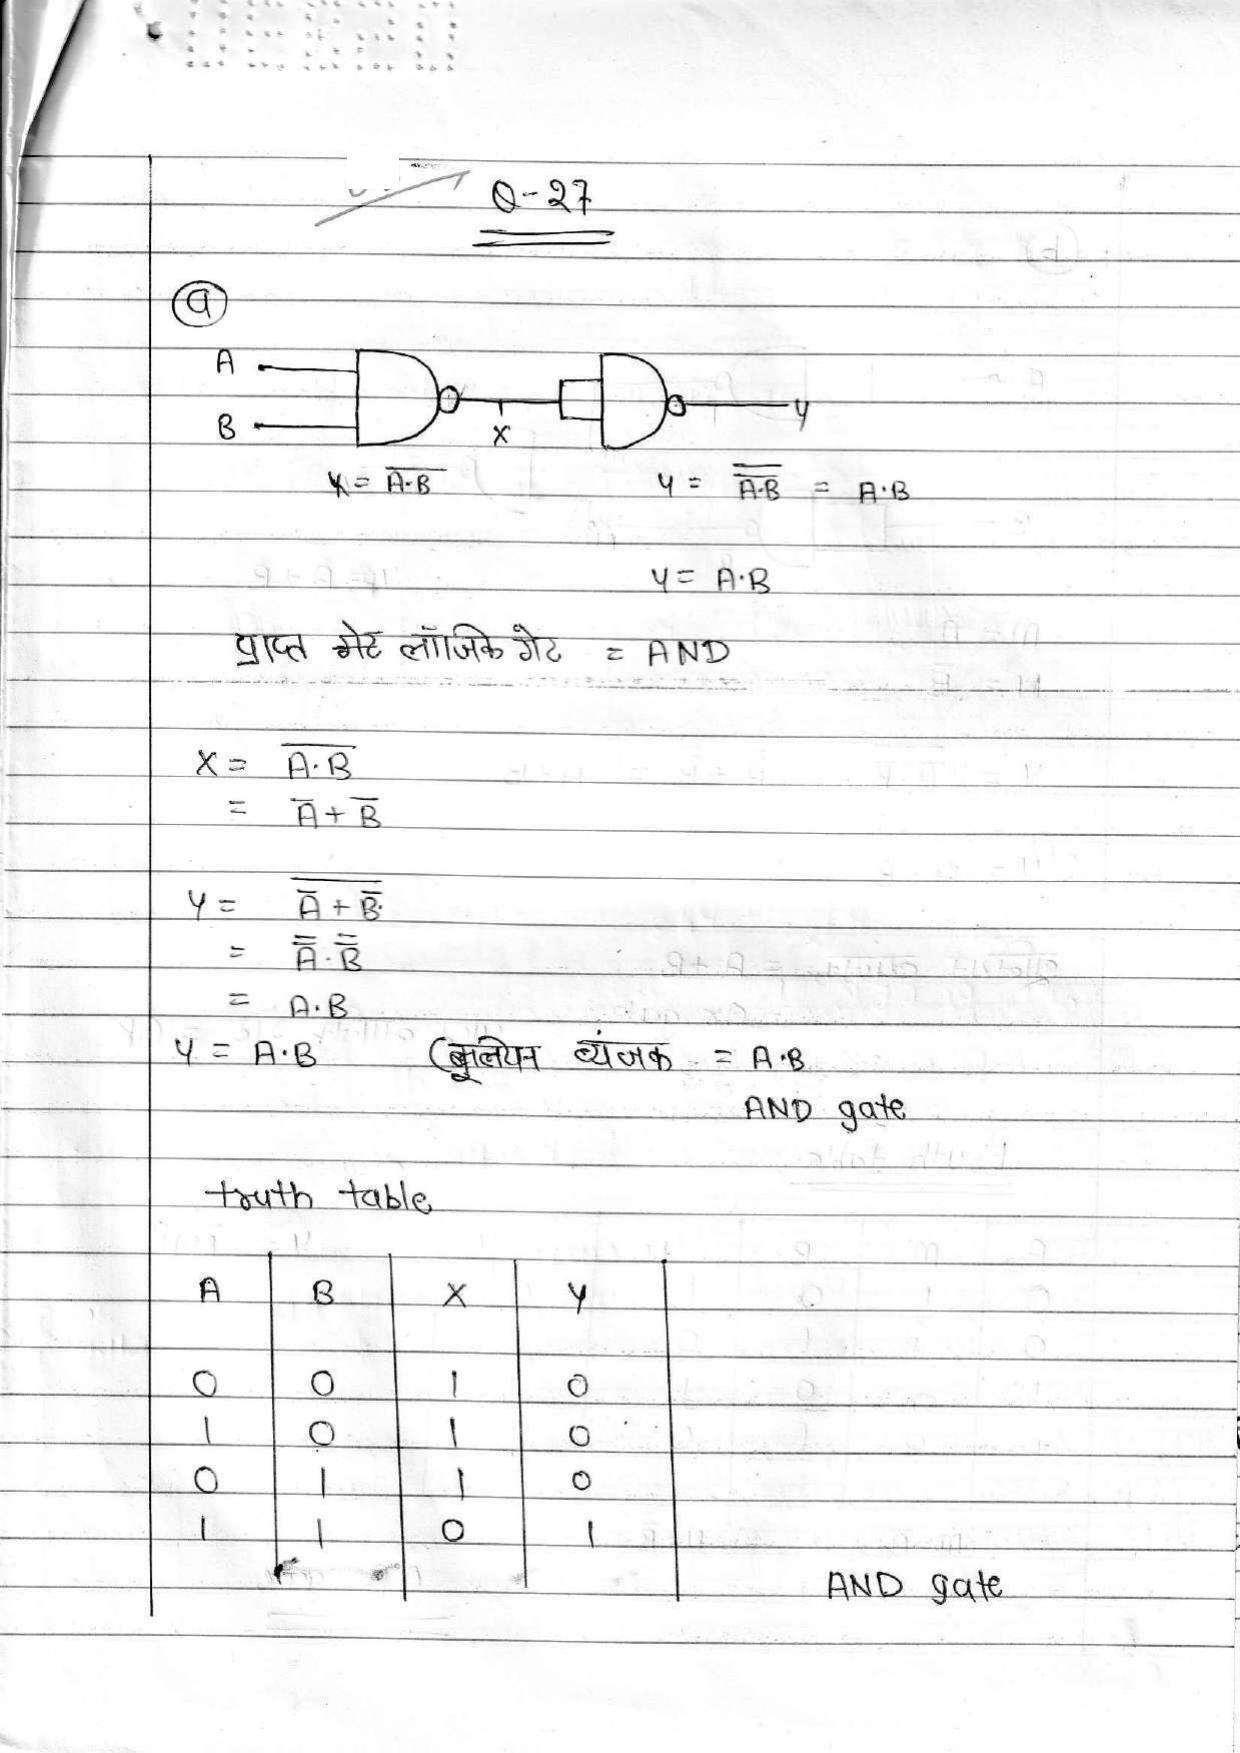 Q-27
(a)
A
B
X
Y
X = \overline{A·B}
Y = \overline{\overline{A·B}} = A·B
Y = A·B
प्राप्त लॉजिक गेट = AND
X = \overline{A·B}
= \overline{A} + \overline{B}
Y = \overline{\overline{A} + \overline{B}}
= \overline{\overline{A}}·\overline{\overline{B}}
= A·B
Y = A·B (बूलियन व्यंजक = A·B
AND gate
truth table
A B X Y
0 0 1 0
1 0 1 0
0 1 1 0
1 1 0 1
AND gate